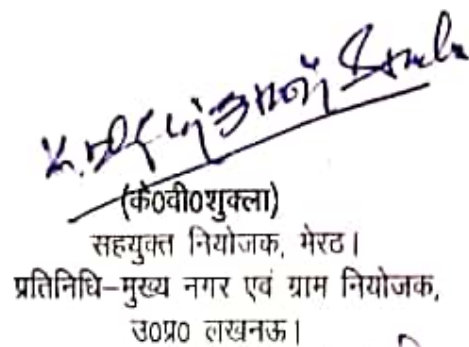 (के0वी0शुक्ला)
सहयुक्त नियोजक, मेरठ।
प्रतिनिधि–मुख्य नगर एवं ग्राम नियोजक,
उ0प्र0 लखनऊ।